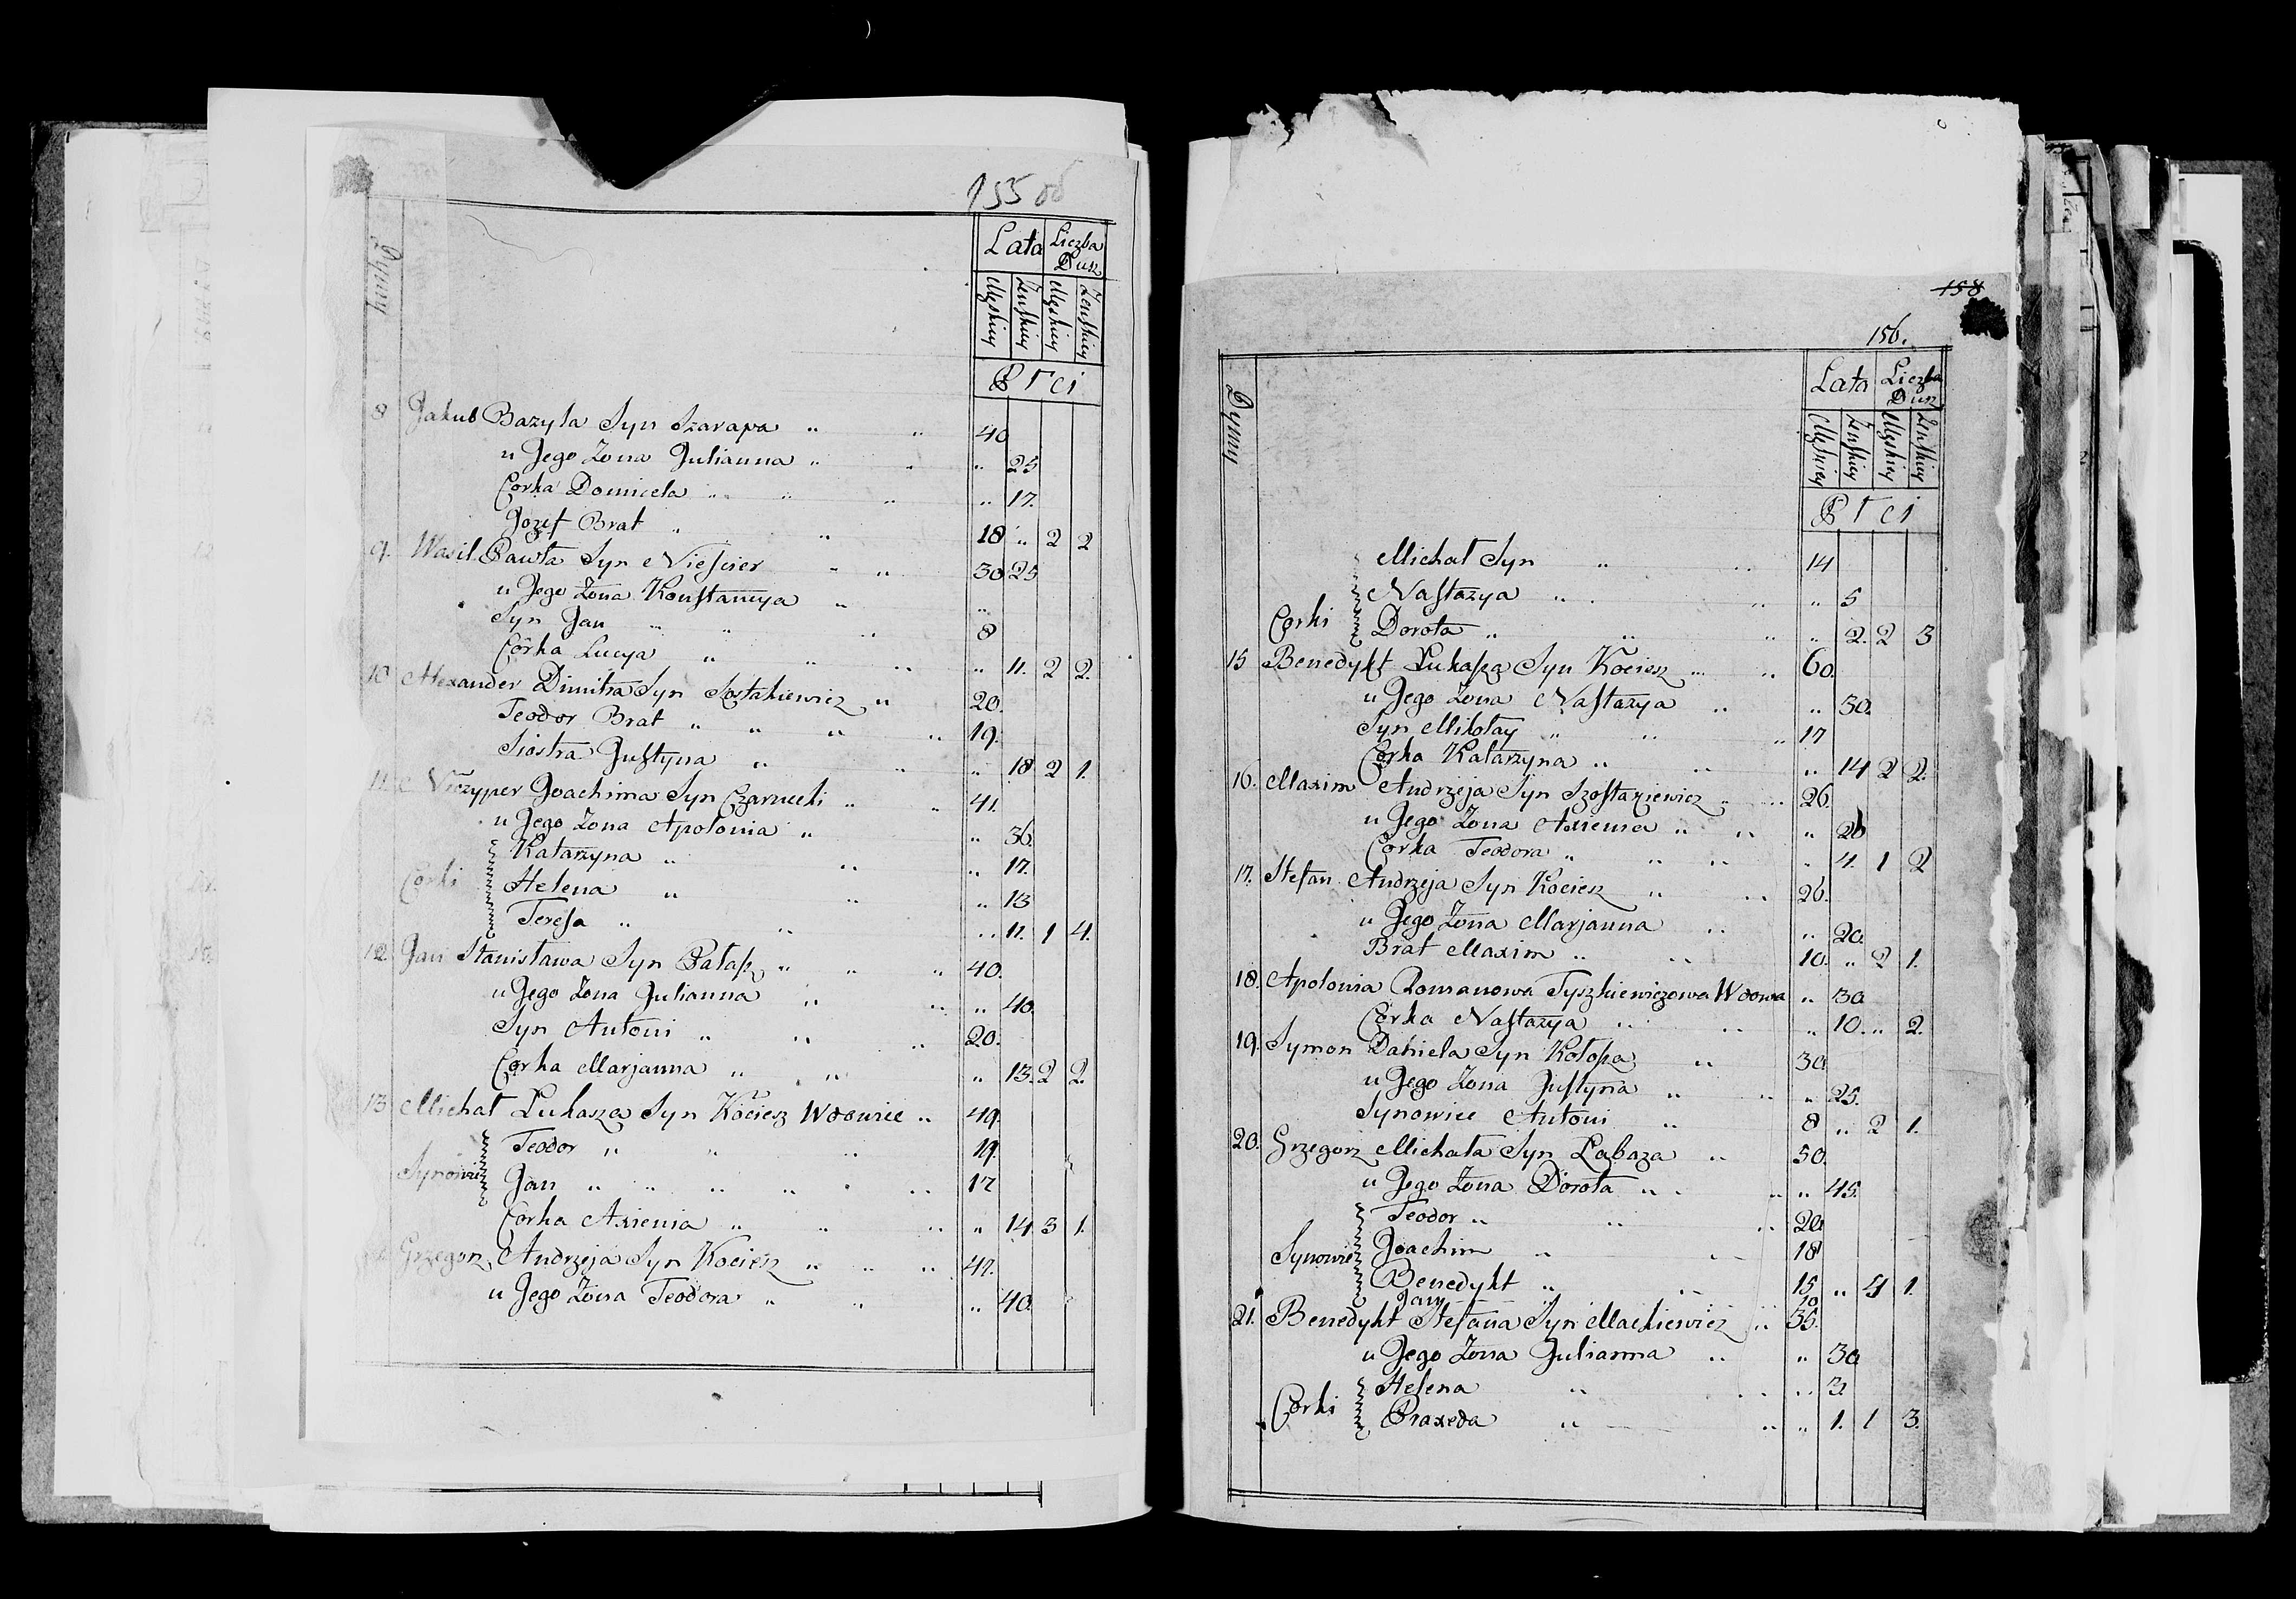 155 об
Dymy
Lata
Liczba Dusz
Męskiey
Żeńskiey
Męskiey
Żeńskiey
Płci
8 Jakub Bazyla Syn Szarapa „ „ 40
u Jego Żona Julianna „ „ „ 25
Corka Domicela „ „ „ „ 17.
Jozef Brat „ „ 18 „ 2 2
9. Wasil Pawła Syn Nieścier „ „ 30 25
u Jego Żona Konstancya „ „
Syn Jan „ „ „ 8
Córka Lucya „ „ „ „ 11. 2 2.
10 Alexander Dimitra Syn Sostakiewicz „ 20.
Teodor Brat „ „ „ „ 19.
Siostra Justyna „ „ „ 18 2 1.
11. Niczyper Joachima Syn Czarnecki „ „ 41.
u Jego Żona Apolonia „ „ 36.
Corki
Katarzyna „ „ „ 17.
Helena „ „ „ 13
Teresa „ „ „ 11. 1 4.
12 Jan Stanisława Syn Pałasz „ „ „ 40.
u Jego Żona Julianna „ „ „ 40.
Syn Antoni „ „ „ 20.
Corka Marjanna „ „ „ 13. 2 2.
13 Michał Łukasza Syn Kociesz Wdowiec „ 49.
Synowie
Teodor „ „ „ 19.
Jan „ „ „ „ „ 17
Corka Axienia „ „ „ „ 14 3 1.
Grzegorz Andrzeja Syn Kociesz „ „ „ 47.
u Jego Żona Teodora „ „ „ 40.
158
156.
Dymy
Lata
Liczba Dusz
Męskiey
Żeńskiey
Męskiey
Żeńskiey
Płci
Michał Syn „ „ 14
Corki
Nastazya „ „ „ 5
Dorota „ „ „ „ 2. 2 3
15 Benedykt Łukasza Syn Kociesz „ „ 60.
u Jego Żona Nastazya „ „ 50.
Syn Mikołay „ „ „ 17
Corka Katarzyna „ „ „ 14 2 2.
16. Maxim Andrzeja Syn Szostakiewicz „ „ 26.
u Jego Żona Axienia „ „ „ 26
Corka Teodora „ „ „ „ 4. 1 2
17. Stefan Andrzeja Syn Kociesz „ „ 26.
u Jego Żona Marjanna „ „ 20.
Brat Maxim „ „ 10. „ 2 1.
18. Apolonia Romanowa Tyszkiewiczowa Wdowa „ 30
Córka Nastazya „ „ „ 10. „ 2.
19. Symon Daniela Syn Kołosza „ 30
u Jego Żona Justyna „ „ „ 25.
Synowiec Antoni „ 8 „ 2 1.
20. Grzegorz Michała Syn Łabaza „ 50.
u Jego Żona Dorota „ „ „ 45.
Synowie
Teodor „ „ „ 20.
Joachim „ „ 18
Benedykt „ „ 15 „ 4 1.
Jan 10
21. Benedykt Stefana Syn Mackiewicz „ 36.
u Jego Żona Julianna „ „ 30
Corki
Helena „ „ „ 3.
Praxeda „ „ „ 1. 1 3.